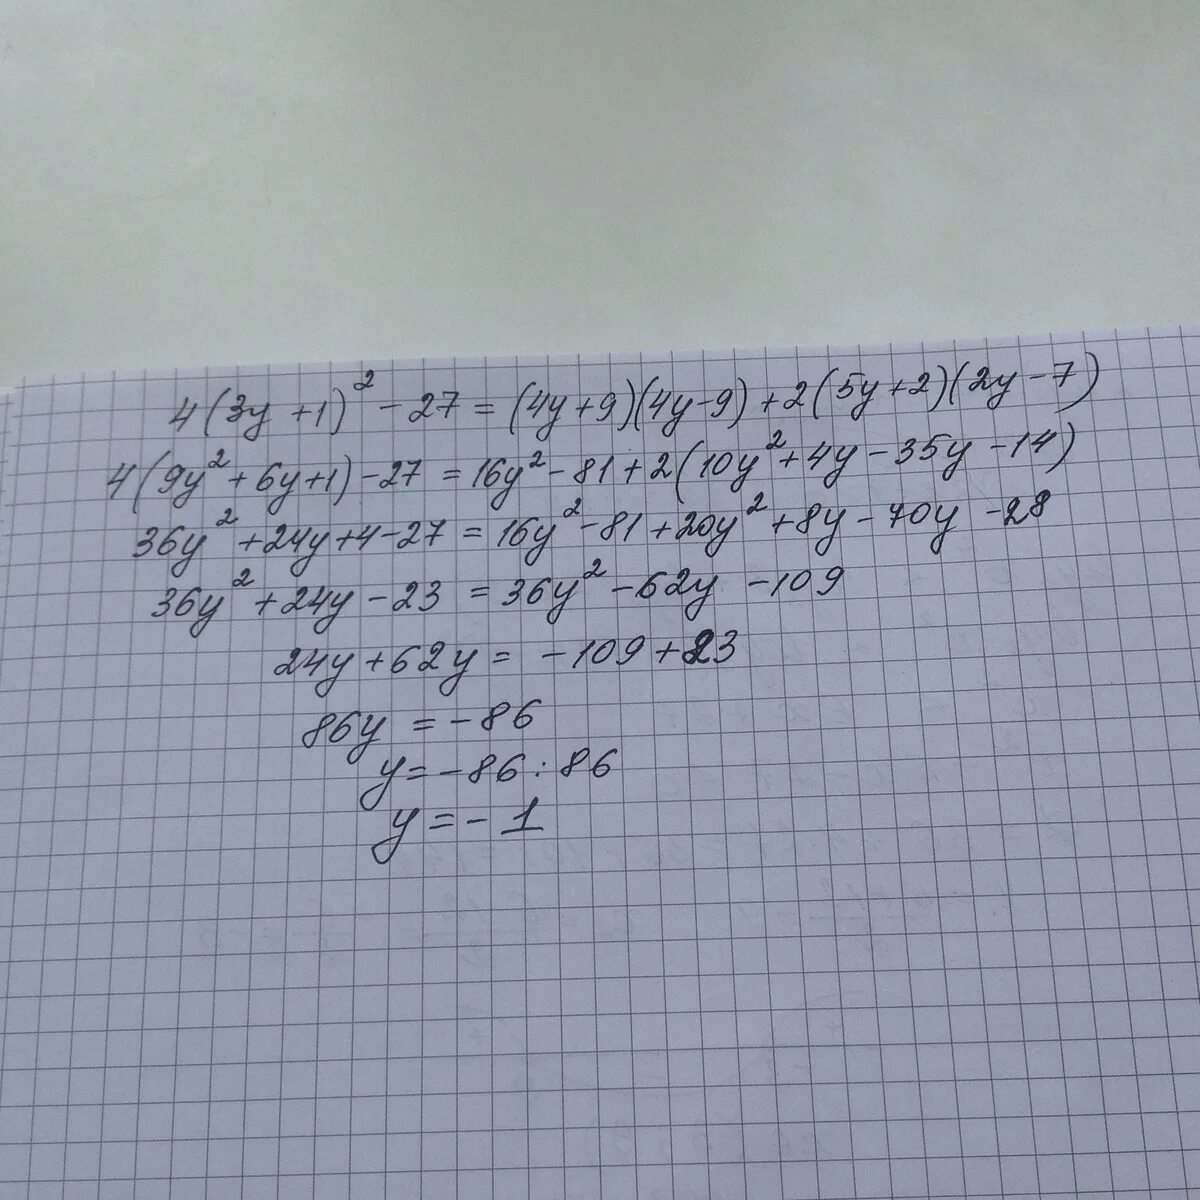 4(3y+1)² - 27 = (4y+9)(4y-9) + 2(5y+2)(2y-7)
4(9y²+6y+1) - 27 = 16y² - 81 + 2(10y²+4y-35y-14)
36y²+24y+4-27 = 16y²-81+20y²+8y-70y-28
36y²+24y-23 = 36y²-62y-109
24y+62y = -109+23
86y = -86
y = -86:86
y = -1